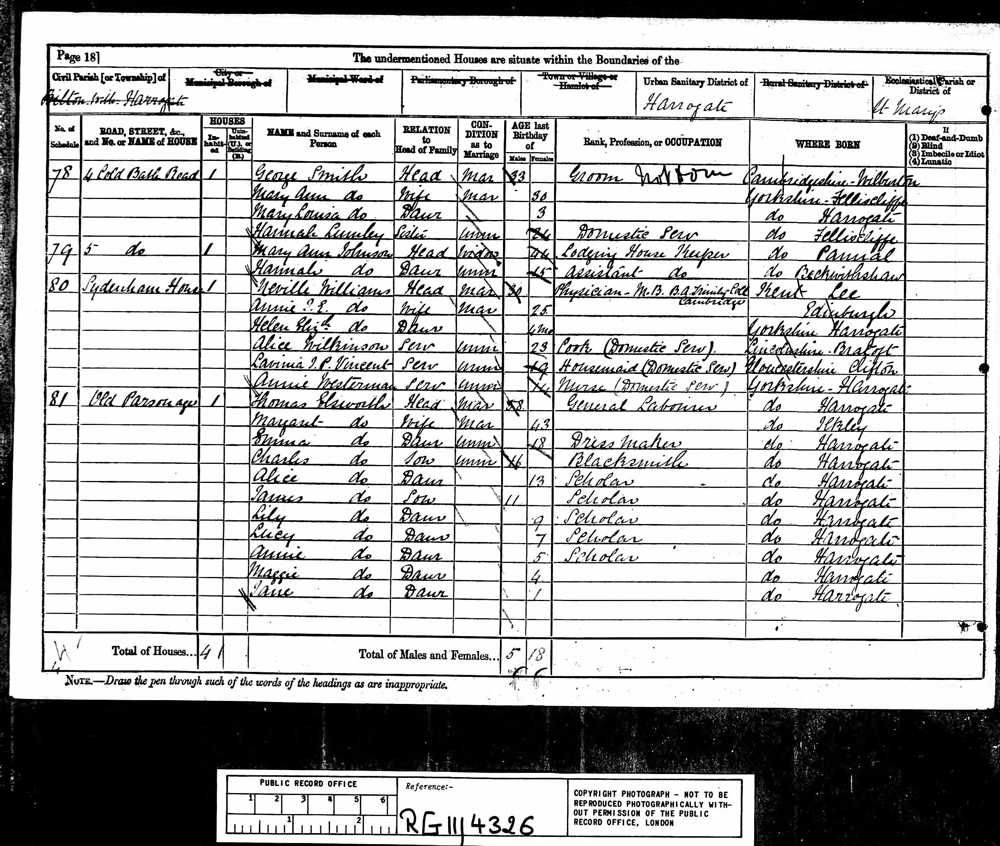 Page 18]
The undermentioned Houses are situate within the Boundaries of the
Civil Parish [or Township] of
City or Municipal Borough of
Municipal Ward of
Parliamentary Borough of
Town or Village or Hamlet of
Urban Sanitary District of
Rural Sanitary District of
Ecclesiastical Parish or District of
Bilton with Harrogate
Harrogate
St Mary's
No. of Schedule
ROAD, STREET, &c., and No. or NAME of HOUSE
HOUSES
Inhabited
Uninhabited (U.), or Building (B.)
NAME and Surname of each Person
RELATION to Head of Family
CONDITION as to Marriage
AGE last Birthday of
Males
Females
Rank, Profession, or OCCUPATION
WHERE BORN
If
(1) Deaf-and-Dumb
(2) Blind
(3) Imbecile or Idiot
(4) Lunatic
78 4 Cold Bath Road 1 George Smith Head Mar 33 Groom Not Dom Cambridgeshire - Wilburton
Mary Ann do Wife Mar 30 Yorkshire - Felliscliffe
Mary Louisa do Daur 3 do Harrogate
Hannah Lumley Sister unm 24 Domestic Serv do Felliscliffe
79 5 do 1 Mary Ann Johnson Head Widow 44 Lodging House Keeper do Pannal
Hannah do Daur unm 15 assistant do do Beckwithshaw
80 Sydenham House 1 Neville Williams Head Mar 30 Physician - M.B. B.A. Trinity Coll Cambridge Kent Lee
Annie I. E. do Wife Mar 25 Edinburgh
Helen Elizth do Daur 4mo Yorkshire Harrogate
Alice Wilkinson Serv unm 23 Cook (Domestic Serv). Lincolnshire - Bratoft
Lavinia J. P. Vincent Serv unm 19 Housemaid (Domestic Serv) Gloucestershire Clifton
Annie Westerman Serv unm 14 Nurse (Domestic Serv) Yorkshire - Harrogate
81 Old Parsonage 1 Thomas Elsworth Head Mar 58 General Labourer do Harrogate
Margaret do Wife Mar 43 do Ilkley
Emma do Daur unm 18 Dress Maker do Harrogate
Charles do Son unm 16 Blacksmith do Harrogate
Alice do Daur 13 Scholar do Harrogate
James do Son 11 Scholar do Harrogate
Lily do Daur 9 Scholar do Harrogate
Lucy do Daur 7 Scholar do Harrogate
Annie do Daur 5 Scholar do Harrogate
Maggie do Daur 4 do Harrogate
Jane do Daur 1 do Harrogate
Total of Houses... 4 1 Total of Males and Females... 5 18
NOTE.—Draw the pen through such of the words of the headings as are inappropriate.
PUBLIC RECORD OFFICE
1 2 3 4 5 6
1 2
Reference:-
RG 11/4326
COPYRIGHT PHOTOGRAPH - NOT TO BE
REPRODUCED PHOTOGRAPHICALLY WITH-
OUT PERMISSION OF THE PUBLIC
RECORD OFFICE, LONDON